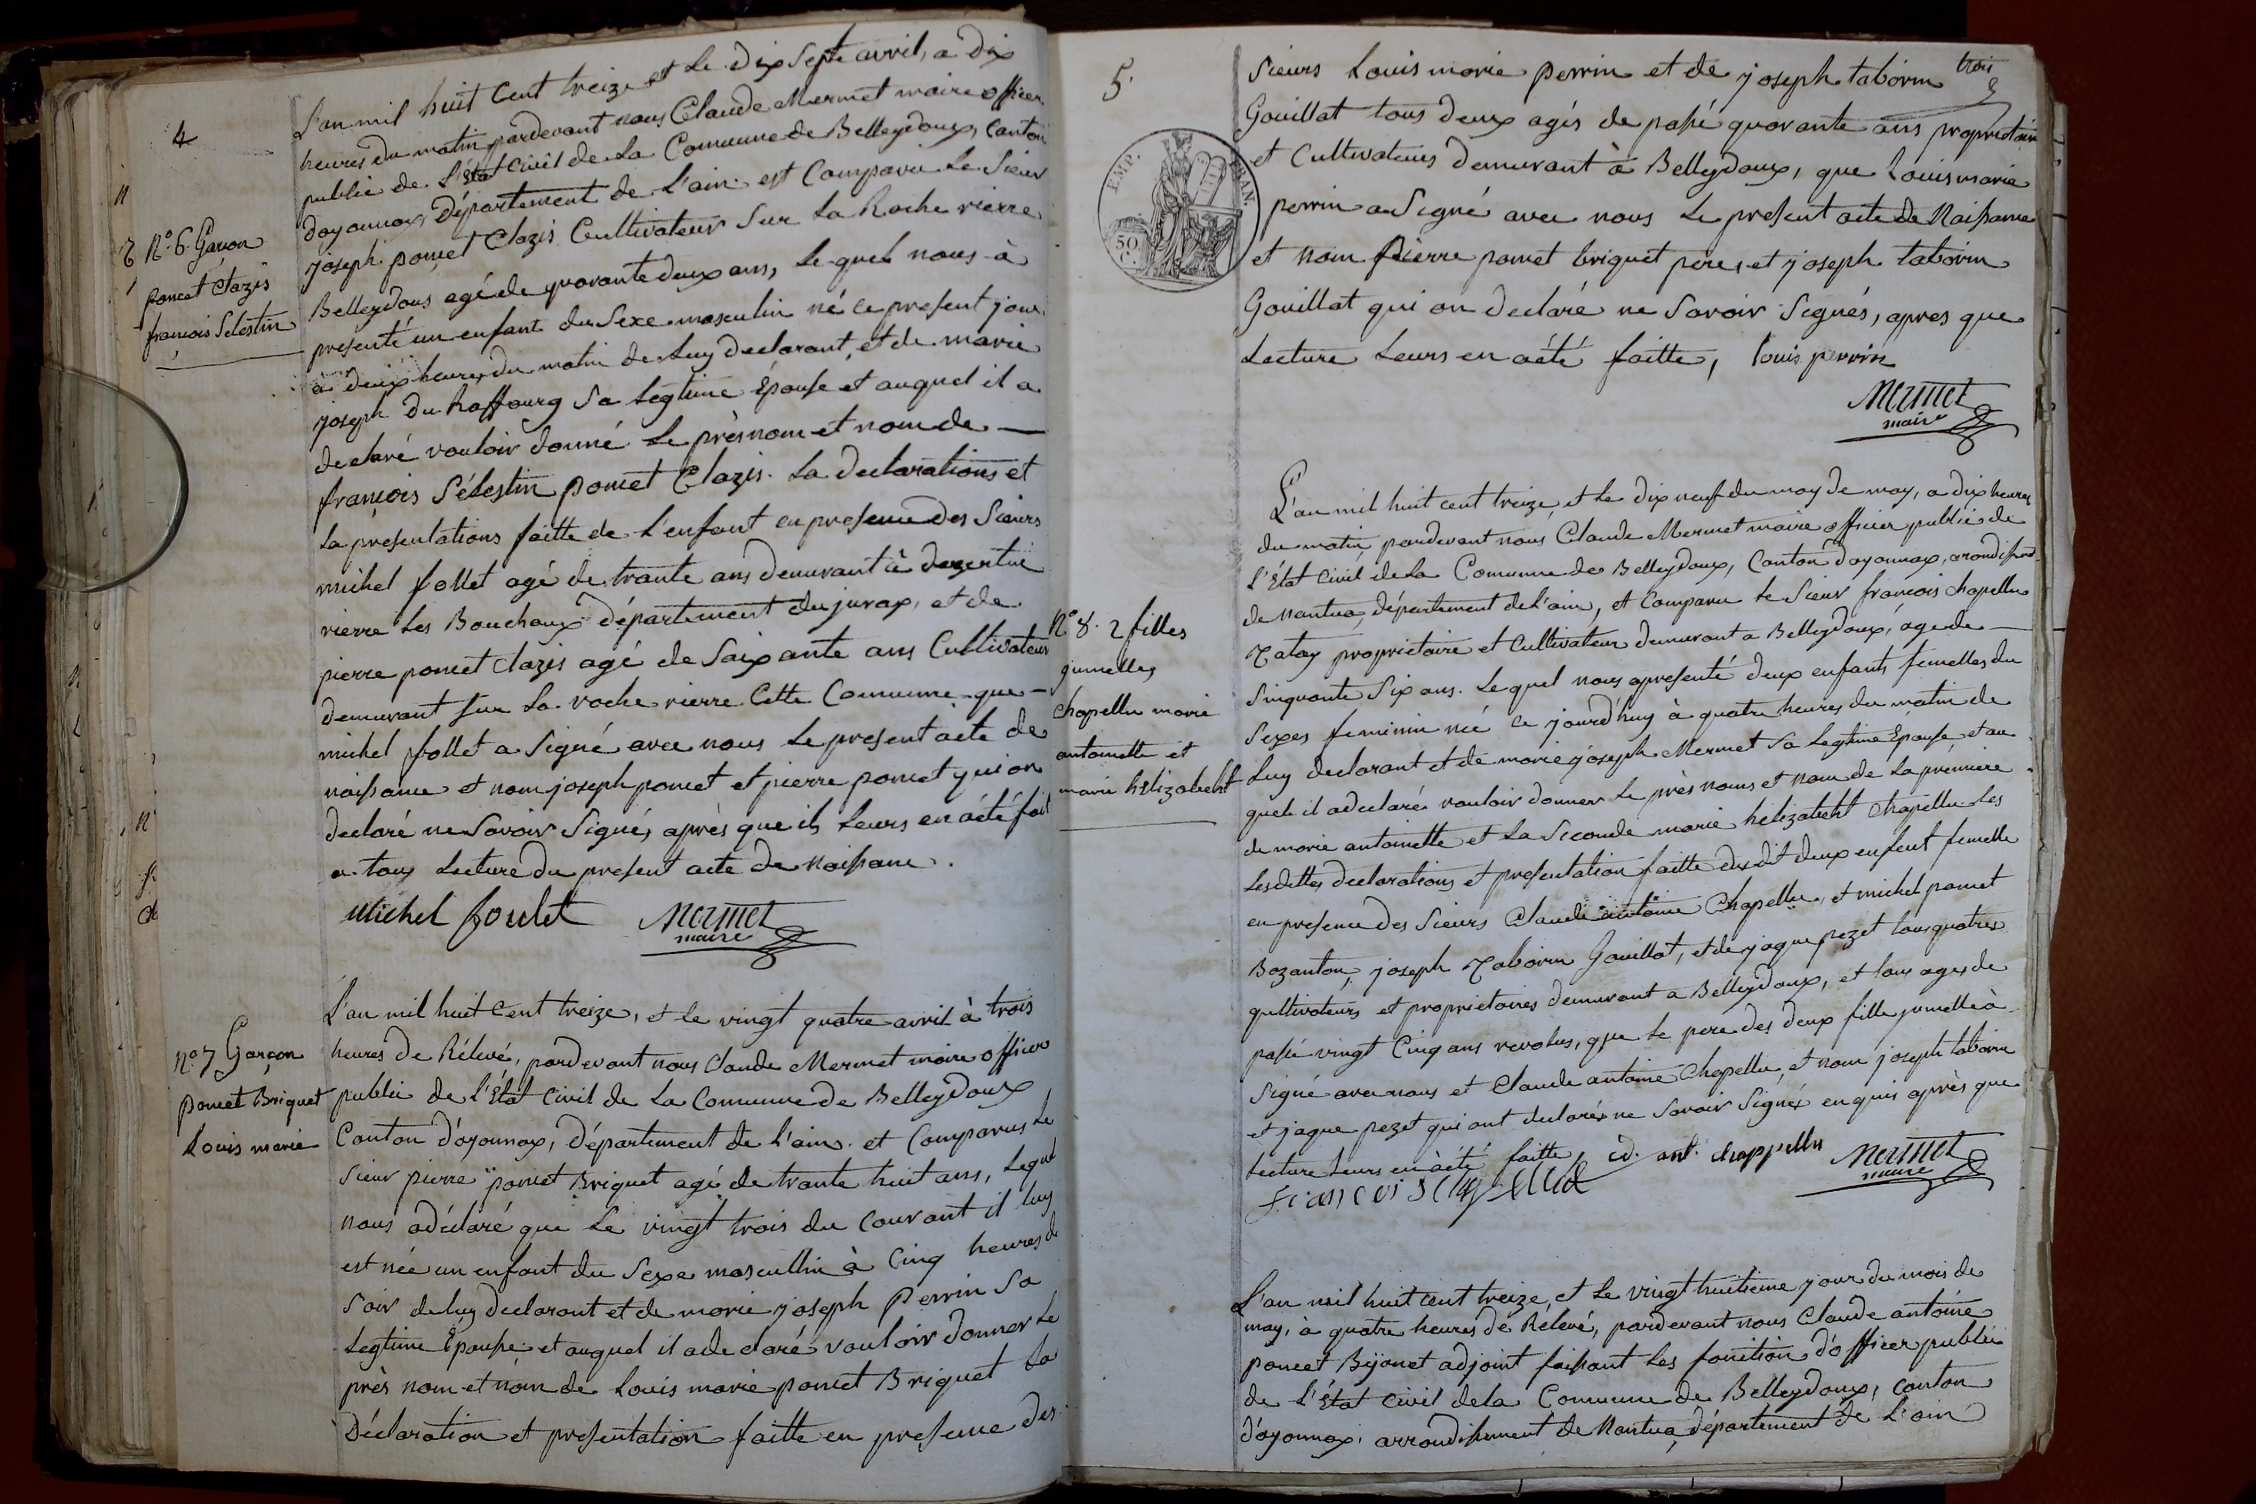 4
L'an mil huit Cent treize et Le dix Sept avril, a dix
heures du matin pardevant nous Claude Mermet maire officier
public de L'État Civil de La Commune de Belleydoux, Canton
doyonnax, département de L'ain est Comparu Le Sieur
joseph poncet Clazis Cultivateur Sur La Roche rierre
Belleydoux agé de quarante deux ans, Le quel nous à
presenté un enfant du Sexe masculin né ce present jour
à deux heures du matin de Luy declarant, et de marie
joseph Du Raffourg Sa Legtime Épouse et auquel il a
declaré vouloir donné Le prèsnom et nom de —
françois Sélestin poncet Clazis. La declarations et
La presentations faitte de L'enfant en presence des Sieurs
michel follet agé de trante ans demurant à dezertin
rierre Les Bouchoux département du jurax, et de
pierre poncet Clazis agé de Soixante ans Cultivateur
demurant Sur La roche rierre Cette Commune que —
michel follet a Signé avec nous Le present acte de
naissance et nom joseph poncet et pierre poncet qui on
declaré ne Savoir Signé, après que il Leurs en acté fait
a tous Lecture du present acte de Naissance.
Michel foulet Mermet
maire
N.º 6. Garçon
poncet Clazis
françois Selestin
L'an mil huit Cent treize, et le vingt quatre avril à trois
heures de Rélevé, pardevant nous Claude Mermet maire officier
public de L'État Civil de La Commune de Belleydoux
Canton d'oyonnax, département de L'ain. et Comparus Le
Sieur pierre poncet Briquet agé de trante huit ans, Lequel
nous adéclaré que Le vingt trois du Courant il luy
est née un enfant du Sexe masculin à Cinq heures du
Soir de luy declarant et de marie joseph Perrin Sa
Legtime Épouse et auquel il ade claré vouloir donner Le
près nom et nom de Louis marie poncet Briquet La
Déclaration et presentation faitte en presence des
n.º 7 Garçon
poncet Briquet
Louis marie
5.
trois
Sieurs Louis marie perrin et de joseph taborin
Gouillat tous deux agés de passé quarante ans propriétaire
et Cultivateurs demurant à Belleydoux, que Louis marie
perrin a Signé avec nous Le present acte de Naissance
et nom Pierre poncet briquet père et joseph taborin
Gouillat qui on declaré ne Savoir Signés, apres que
Lecture Leurs en acté faitte, louis perrin
Mermet
maire
EMP. FRAN.
50 C.
L'an mil huit cent treize, et Le dix neuf du moy de may, a dix heures
du matin pardevant nous Claude Mermet maire officier public de
L'État Civil de La Commune de Belleydoux, Canton doyonnax, arondisst
de Nantua, département de L'ain, et Comparu Le Sieur francois Chapellu
Tatay proprietaire et Cultivateur demurant a Belleydoux, age de —
Sinquante Six ans. Le quel nous apresenté deux enfants femelles du
Sexes feminin née ce jourd'huy à quatre heures du matin de
Luy declarant et de marie joseph Mermet Sa Legtime Épouse et au
quel il adeclaré vouloir donner Le près noms et nom de La première
de marie antoinette et La Seconde marie hélizabeht Chapellu Les
Lesdittes declarations et presentation faitte dudit deux enfent femelle
en presence des Sieurs Claude antoine Chapellu, et michel poncet
Bozanton, joseph Taborin Gouillat, et de jaque pezet tous quatres
qultivateurs et proprietaires demurant a Belleydoux, et tous ages de
passé vingt Cinq ans revolus, que Le pere des deux fille jumelle à
Signé avec nous et Claude antoine Chapellu, et nom joseph taborin
et jaque pezet qui ont declarés ne Savoir Signés enquis après que
Lecture Leurs en àété faitte, cd. ant. chappellu Mermet
maire
francois chapellu
N.º 8. 2 filles
jumelles
Chapellu marie
antoinette et
marie hélizabeht
L'an mil huit cent treize, et Le vingt huitieme jour du mois de
may, à quatre heures de Relevé, pardevant nous Claude antoine
poncet Bijonet adjoint faissant Les fonition d'officier public
de L'État civil dela Commune de Belleydoux, Canton
d'oyonnax, arrondissement de Nantua, département de L'ain